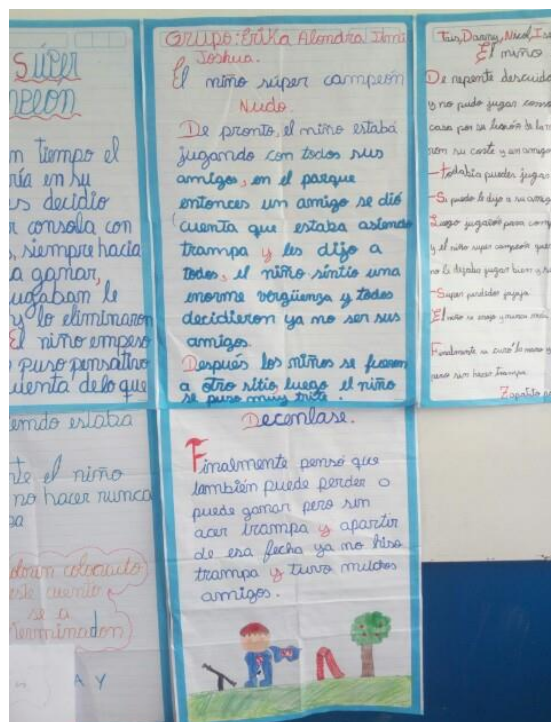 SÚPER
PEON
n tiempo el
ía en su
s decidio
r consola con
, siempre hacía
a ganar,
ugaban le
y lo eliminaron
El niño empeso
puso pensativo
uenta delo que
endo estaba
te el niño
no hacer nunca
pa
olorin colorauto
este cuento
se a
terminadon
A Y
Grupo: Erika Alondra Ilmi
Joshua.
El niño súper campeón
Nudo.
De pronto, el niño estaba
jugando con todos sus
amigos, en el parque
entonces un amigo se dió
cuenta que estaba asiendo
trampa y les dijo a
todos, el niño sintio una
enorme vergüenza y todos
decidieron ya no ser sus
amigos.
Después los niños se fueron
a otro sitio luego el niño
se puso muy trite.
Decenlase.
Finalmente pensó que
también puede perder o
puede ganar pero sin
acer trampa y apartir
de esa fecha ya no hiso
trampa y tuvo muchos
amigos.
Tais, Danny, Nicol, Is
El niño
De repente descuido
y no pudo jugar conso
casa por su lesión de la m
con su coste y un amigo
-todabia puedes jugar
-Si puedo le dijo a su amig
Luego jugaron para com
y el niño super campeón que
no lo dejaba jugar bien y s
-Super perdedor jajaja
El niño se enojo y nunca más
Finalmente se curó la mano y
ganó sin hacer trampa
Zapatito